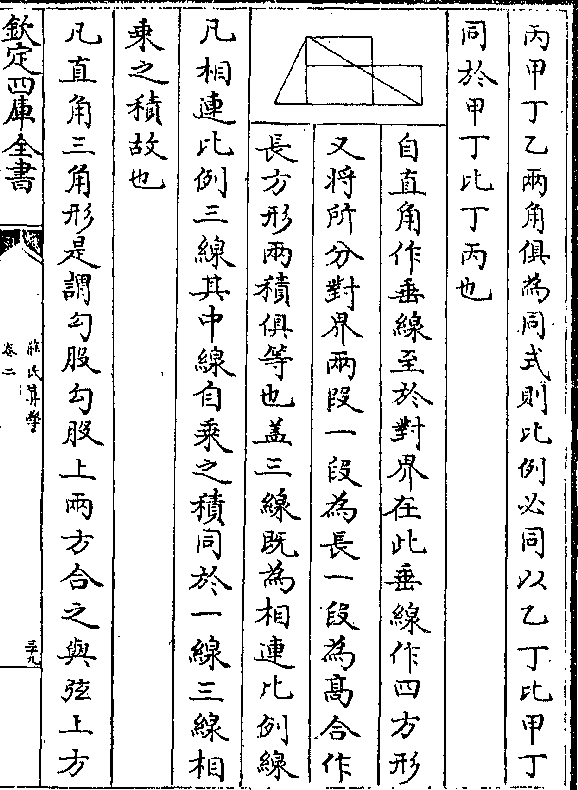 丙甲丁乙兩角俱為同式則比例必同以乙丁比甲丁
同於甲丁比丁丙也
自直角作垂線至於對界在此垂線作四方形
又將所分對界兩段一段為長一段為髙合作
長方形兩積俱等也盖三線既為相連比例線
凡相連比例三線其中線自乘之積同於一線三線相
乘之積故也
凡直角三角形是謂勾股勾股上兩方合之與弦上方
欽定四庫全書
莊氏算學
卷二
三九